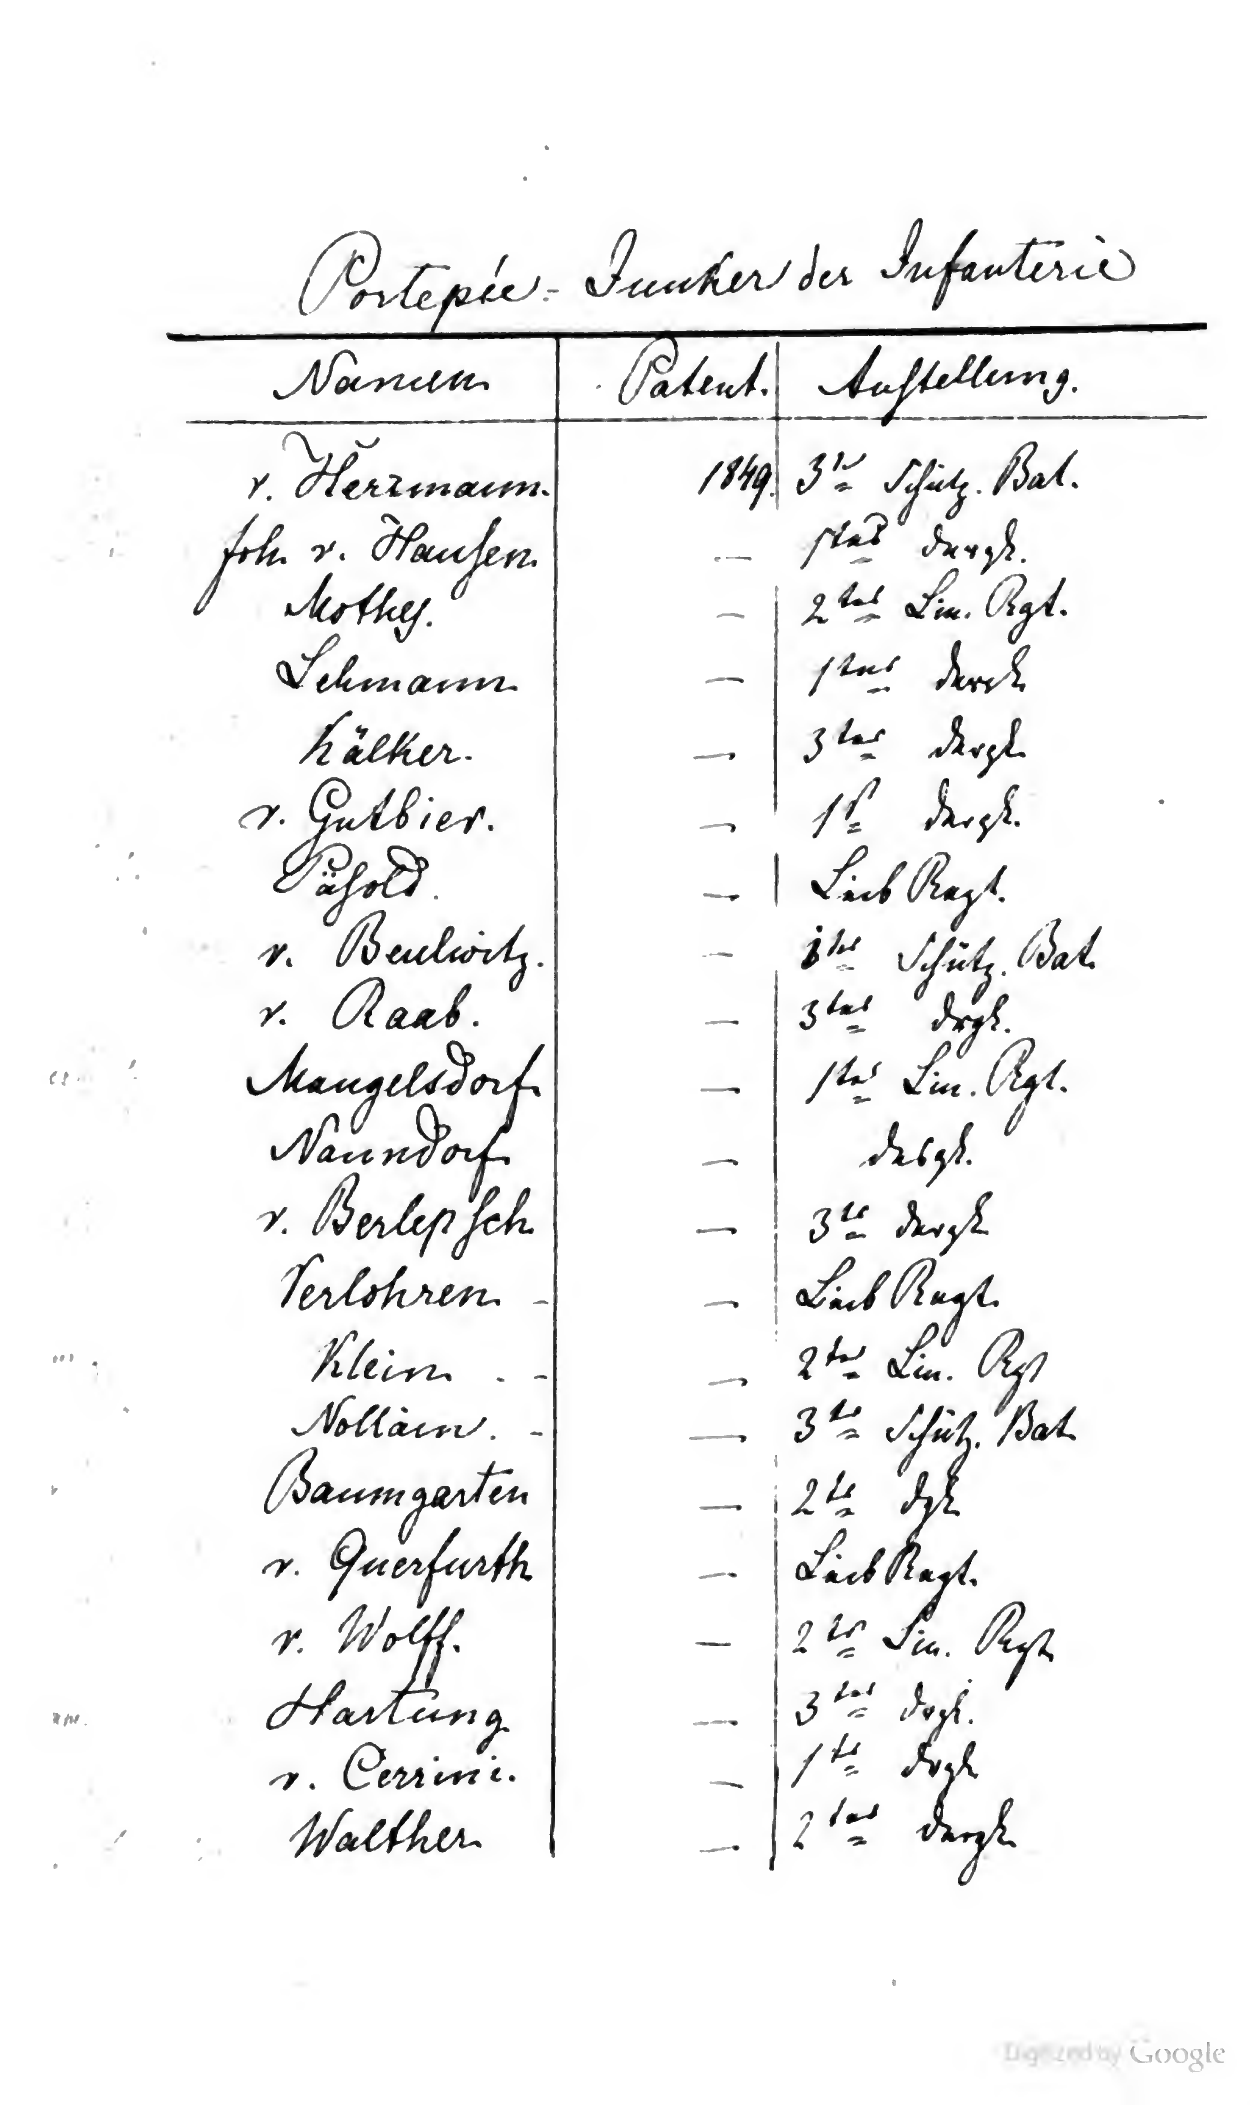 Portepée-Junker der Infanterie
Namen. Patent. Anstellung.
v. Herrmann. 1849. 3te Schütz. Bat.
Joh. v. Hausen. — 1tes dergl.
Mothes. — 2tes Lin. Rgt.
Lehmann. — 1tes dergl.
Kälker. — 3tes dergl.
v. Gutbier. — 1s dergl.
Päßold. — Leib Regt.
v. Beulwitz. — 1tes Schütz. Bat.
v. Raab. — 3tes drgl.
Mangelsdorf. — 1tes Lin. Rgt.
Naundorf. — desgl.
v. Berlepsch. — 3te dergl.
Verlohren. — Leib Regt.
Klein. — 2tes Lin. Rgt
Nollain. — 3te Schütz. Bat.
Baumgarten — 2te dgl.
v. Querfurth. — Leib Regt.
v. Wolff. — 2te Lin. Rgt.
Hartung. — 3tes drgl.
v. Cerrini. — 1te drgl.
Walther. — 2tes dergl.
Digitized by Google